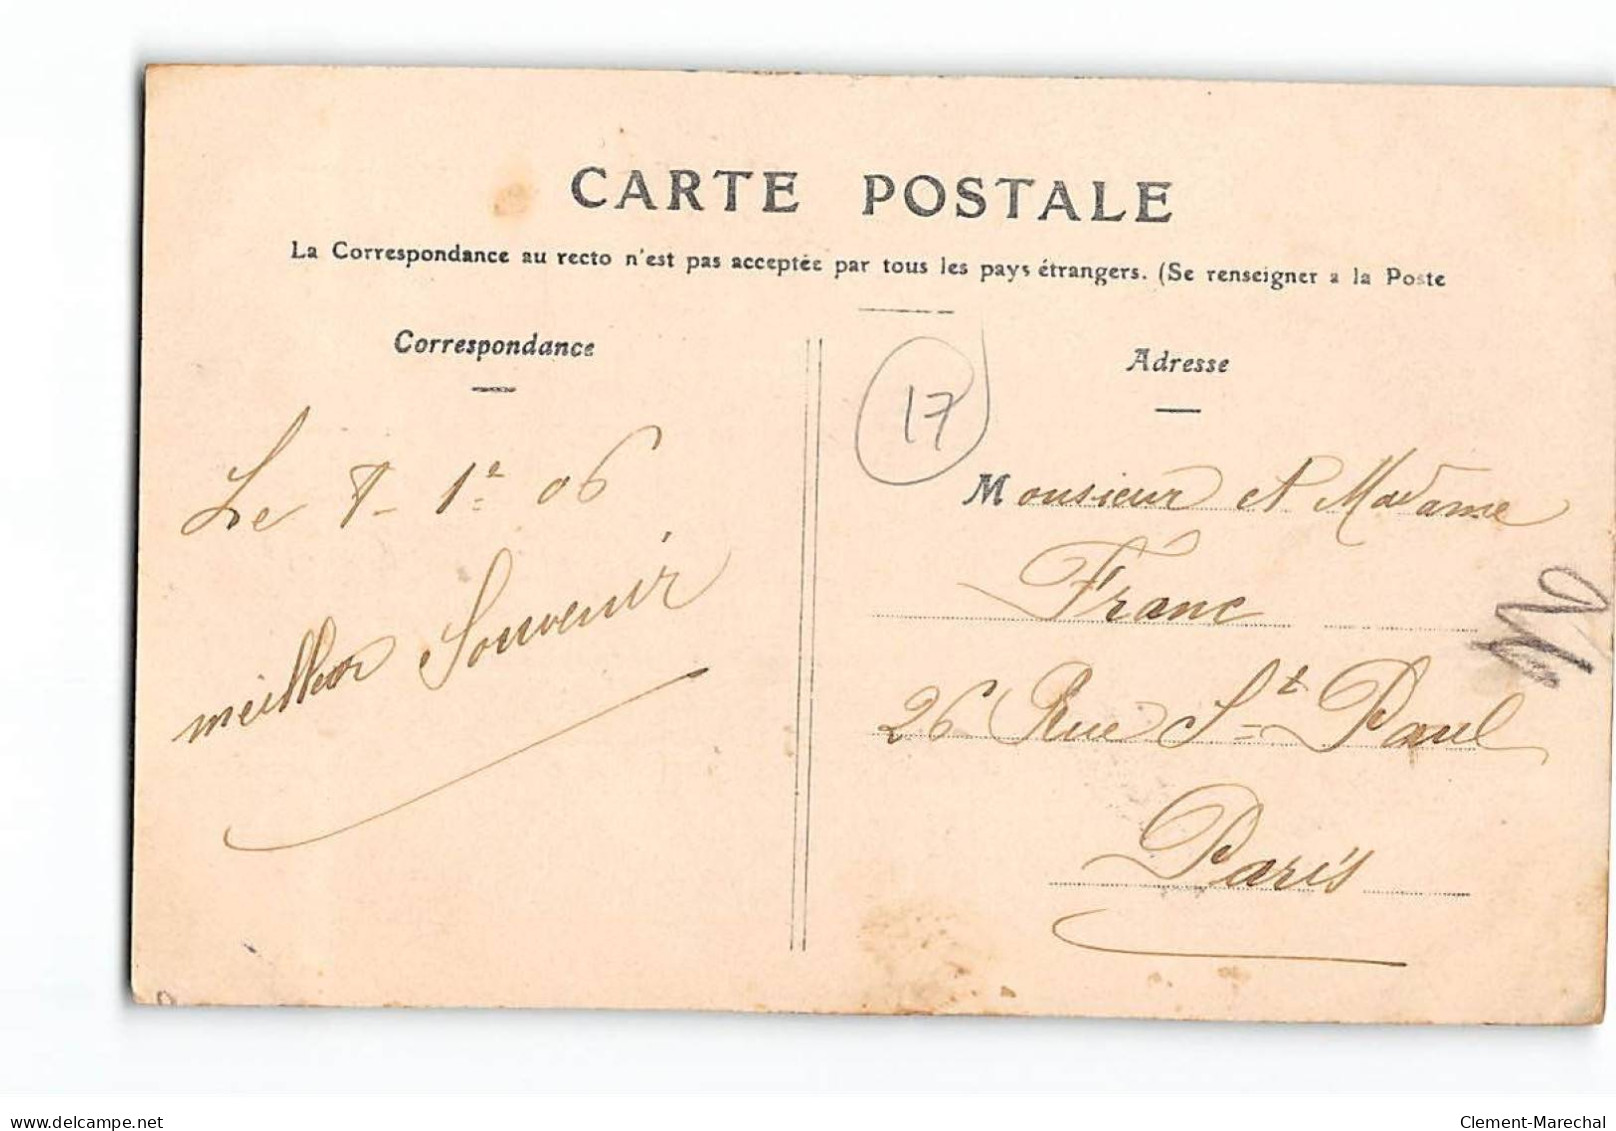 CARTE POSTALE
La Correspondance au recto n'est pas acceptée par tous les pays étrangers. (Se renseigner a la Poste
Correspondance
Le 8 - 1e 06
meilleur Souvenir
Adresse
17
Monsieur et Madame
Franc
26 Rue St Paul
Paris
delcampe.net
Clement-Marechal